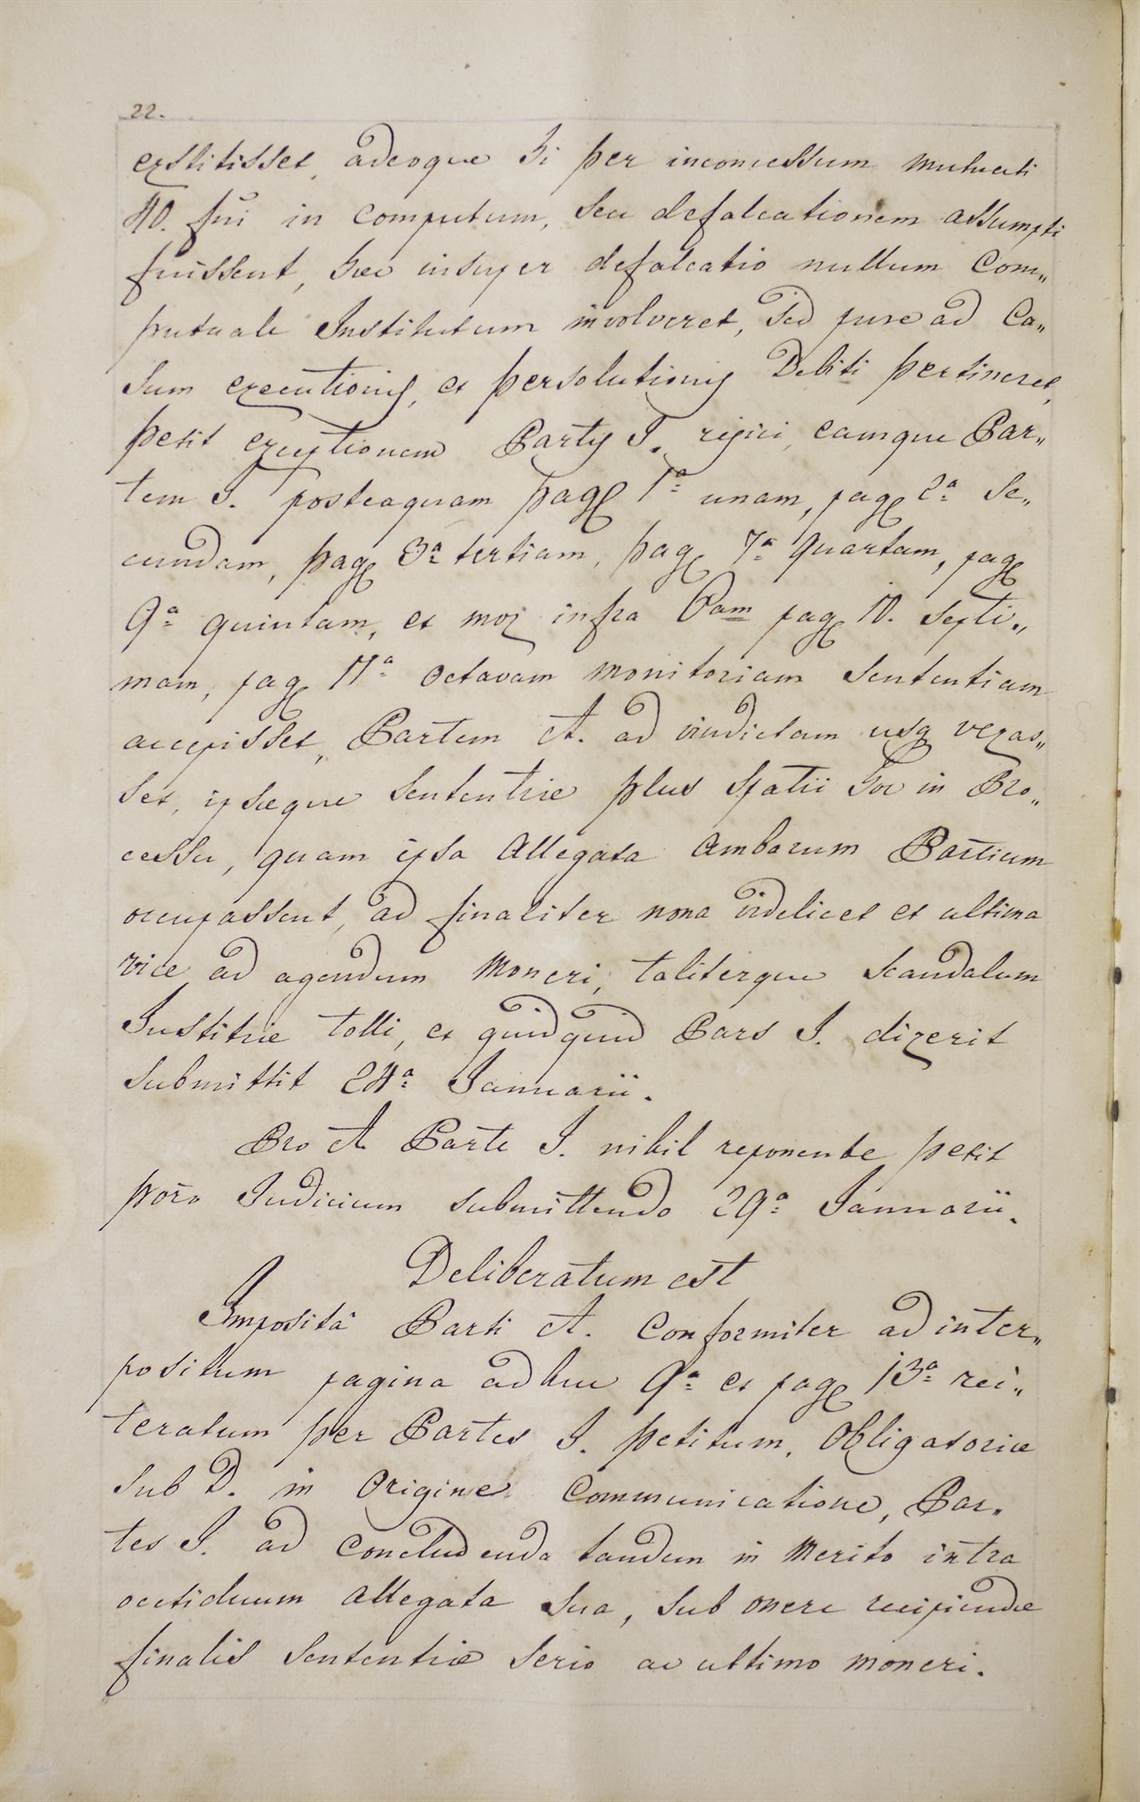 22.
exstitisset, adeoque Si per inconcessum mutuati
40. fni in computum, seu defalcationem assumpti
fuissent, hæc insuper defalcatio nullum Com„
putuale Institutum involveret, Sed jure ad Ca„
sum executionis, et persolutionis Debiti pertineret,
petit exceptionem Partis I. rejici, eamque Par„
tem I. posteaquam pag 1ª unam, pag 2ª Se„
cundam, pag 3ª tertiam, pag 7ª quartam, pag
9ª quintam, et mox infra 6am pag 10. Septi„
mam, pag 11ª octavam monitoriam Sententiam
accepisset, Partem A. ad vindictam usq vexas„
set, ipsæque Sententiæ plus Spatii hoc in Pro„
cessu, quam ipsa Allegata Ambarum Partium
occupassent, ad finaliter nona videlicet et ultima
vice ad agendum Moneri, taliterque Scandalum
Justitiæ tolli, et quidquid Pars I. dixerit
Submittit 24ª Januarii.
Pro A Parte I. nihil reponente petit
porro Judicium submittendo 29ª Januarii.
Deliberatum est
Imposita Parti A. Conformiter ad inter„
positum pagina adhuc 9ª et pag 13ª rei„
teratum per Partes I. petitum, Obligatoriæ
Sub D. in Origine Communicatione, Par„
tes I. ad Concludenda tandem in Merito intra
octiduum Allegata Sua, Sub onere recipiendæ
finalis Sententiæ Serio ac ultimo moneri.